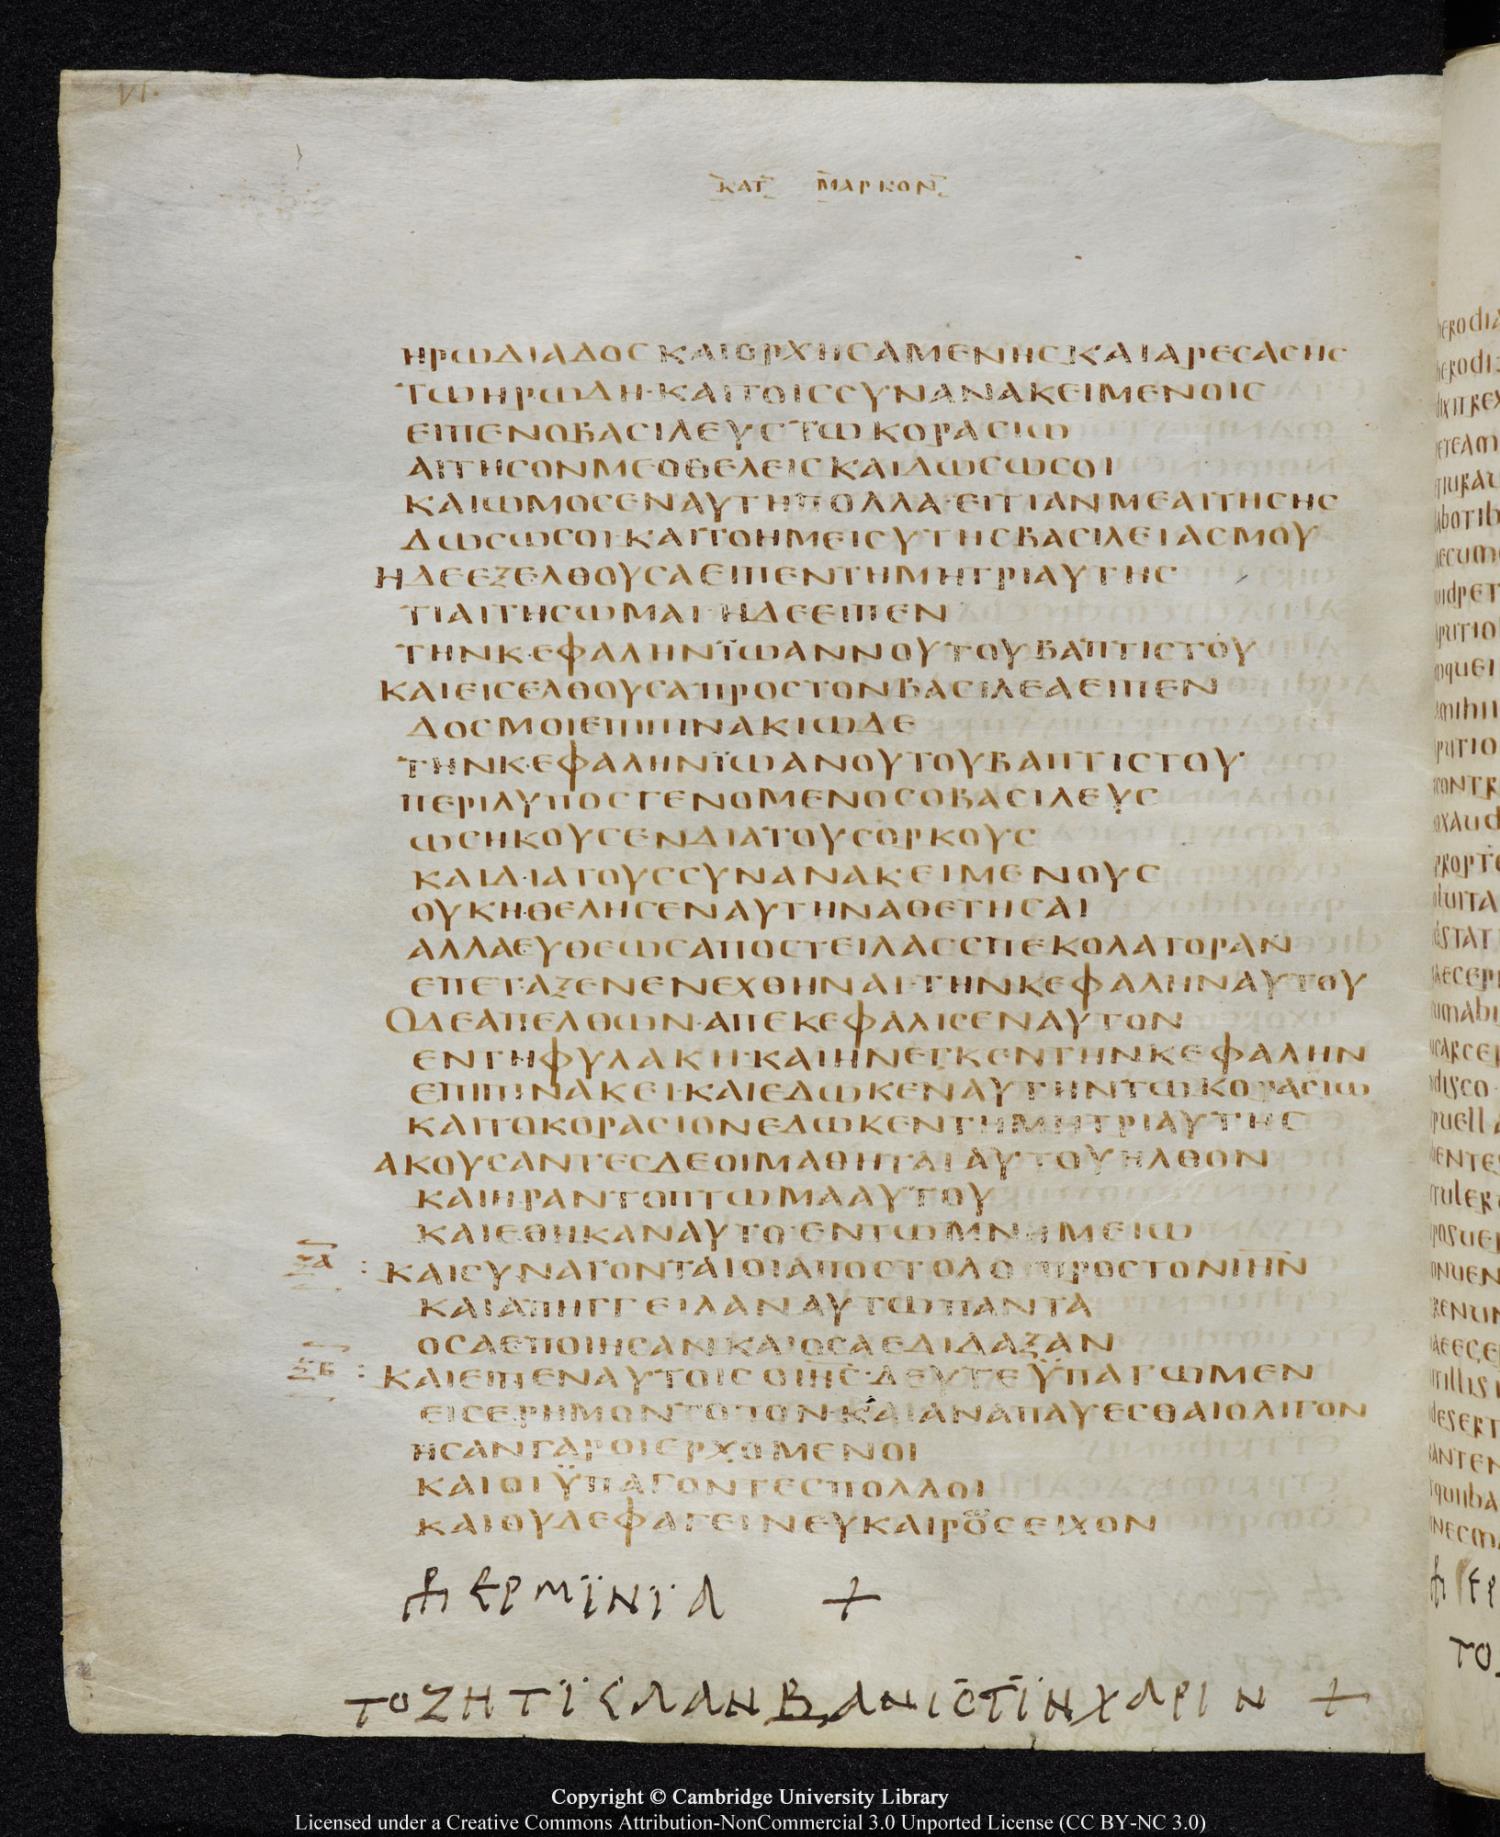 ΚΑΤ ΜΑΡΚΟΝ
ΗΡΩΔΙΑΔΟС ΚΑΙΟΡΧΗСΑΜΕΝΗС ΚΑΙΑΡΕСΑСΗС
ΤΩΗΡΩΔΗ·ΚΑΙΤΟΙССΥΝΑΝΑΚΕΙΜΕΝΟΙС
ΕΙΠΕΝΟΒΑСΙΛΕΥСΤΩΚΟΡΑСΙΩ
ΑΙΤΗСΟΝΜΕΟΘΕΛΕΙСΚΑΙΔΩСΩСΟΙ
ΚΑΙΩΜΟСΕΝΑΥΤΗΠΟΛΛΑ·ΕΙΤΙΑΝΜΕΑΙΤΗСΗС
ΔΩСΩСΟΙ·ΚΑΙΤΟΗΜΕΙСΥΤΗСΒΑСΙΛΕΙΑСΜΟΥ
ΗΔΕΕΞΕΛΘΟΥСΑΕΙΠΕΝΤΗΜΗΤΡΙΑΥΤΗС
ΤΙΑΙΤΗСΩΜΑΙ·ΗΔΕΕΙΠΕΝ
ΤΗΝΚΕΦΑΛΗΝΪΩΑΝΝΟΥΤΟΥΒΑΠΤΙСΤΟΥ
ΚΑΙΕΙСΕΛΘΟΥСΑΠΡΟСΤΟΝΒΑСΙΛΕΑΕΙΠΕΝ
ΔΟСΜΟΙΕΠΙΠΙΝΑΚΙΩΔΕ
ΤΗΝΚΕΦΑΛΗΝΪΩΑΝΟΥΤΟΥΒΑΠΤΙСΤΟΥ
ΠΕΡΙΛΥΠΟСΓΕΝΟΜΕΝΟСΟΒΑСΙΛΕΥС
ΩСΗΚΟΥСΕΝΔΙΑΤΟΥСΟΡΚΟΥС
ΚΑΙΔΙΑΤΟΥССΥΝΑΝΑΚΕΙΜΕΝΟΥС
ΟΥΚΗΘΕΛΗСΕΝΑΥΤΗΝΑΘΕΤΗСΑΙ
ΑΛΛΑΕΥΘΕΩСΑΠΟСΤΕΙΛΑССΠΕΚΟΛΑΤΟΡΑΝ
ΕΠΕΤΑΞΕΝΕΝΕΧΘΗΝΑΙ·ΤΗΝΚΕΦΑΛΗΝΑΥΤΟΥ
ΟΔΕΑΠΕΛΘΩΝ·ΑΠΕΚΕΦΑΛΙСΕΝΑΥΤΟΝ
ΕΝΤΗΦΥΛΑΚΗ·ΚΑΙΗΝΕΓΚΕΝΤΗΝΚΕΦΑΛΗΝ
ΕΠΙΠΙΝΑΚΕΙ·ΚΑΙΕΔΩΚΕΝΑΥΤΗΝΤΩΚΟΡΑСΙΩ
ΚΑΙΤΟΚΟΡΑСΙΟΝΕΔΩΚΕΝΤΗΜΗΤΡΙΑΥΤΗС
ΑΚΟΥСΑΝΤΕСΔΕΟΙΜΑΘΗΤΑΙΑΥΤΟΥΗΛΘΟΝ
ΚΑΙΗΡΑΝΤΟΠΤΩΜΑΑΥΤΟΥ
ΚΑΙΕΘΗΚΑΝΑΥΤΟ·ΕΝΤΩΜΝΗΜΕΙΩ
ΞΑ : ΚΑΙСΥΝΑΓΟΝΤΑΙΟΙΑΠΟСΤΟΛΟΙΠΡΟСΤΟΝΙΗΝ
ΚΑΙΑΠΗΓΓΕΙΛΑΝΑΥΤΩΠΑΝΤΑ
ΟСΑΕΠΟΙΗСΑΝΚΑΙΟСΑΕΔΙΔΑΞΑΝ
ΞΒ : ΚΑΙΕΙΠΕΝΑΥΤΟΙСΟΙΗС·ΔΕΥΤΕΫΠΑΓΩΜΕΝ
ΕΙСΕΡΗΜΟΝΤΟΠΟΝ·ΚΑΙΑΝΑΠΑΥΕСΘΑΙΟΛΙΓΟΝ
ΗСΑΝΓΑΡΟΙΕΡΧΟΜΕΝΟΙ
ΚΑΙΟΙΫΠΑΓΟΝΤΕСΠΟΛΛΟΙ
ΚΑΙΟΥΔΕΦΑΓΕΙΝΕΥΚΑΙΡΟСΕΙΧΟΝ
ΕΡΜΪΝΪΑ +
ΤΟΖΗΤΪС +
Copyright © Cambridge University Library
Licensed under a Creative Commons Attribution-NonCommercial 3.0 Unported License (CC BY-NC 3.0)